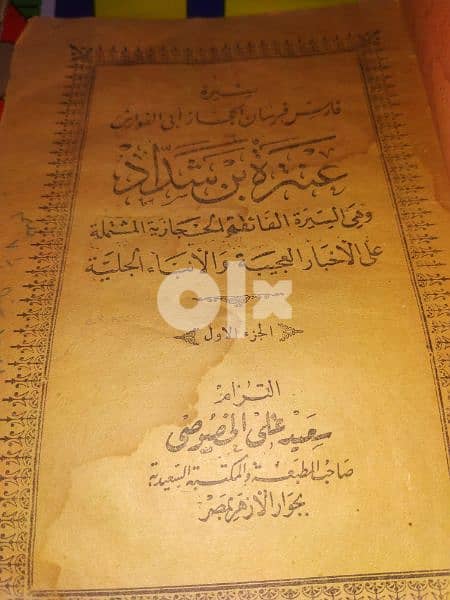 سيرة
فارس فرسان الحجاز أبي الفوارس
عنترة بن شداد
وهي السيرة الفائقة الحجازية المشتملة
على الأخبار العجيبة والأنباء الجلية
olx
الجزء الاول
التزام
سعيد على الخصوصى
صاحب المطبعة والمكتبة السعيدية
بجوار الأزهر بمصر